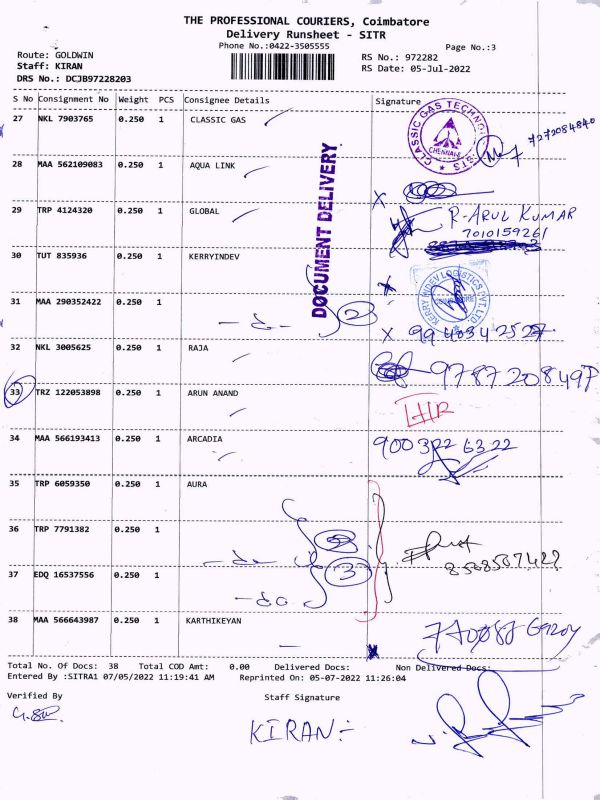 THE PROFESSIONAL COURIERS, Coimbatore
Delivery Runsheet - SITR
Phone No.:0422-3505555
Page No.:3
Route: GOLDWIN
RS No.: 972282
Staff: KIRAN
RS Date: 05-Jul-2022
DRS No.: DCJB97228203
S No Consignment No Weight PCS Consignee Details Signature
27 NKL 7903765 0.250 1 CLASSIC GAS
CLASSIC GAS
CHENNAI
7272084840
28 MAA 562109083 0.250 1 AQUA LINK
DOCUMENT DELIVERY
29 TRP 4124320 0.250 1 GLOBAL
R-ARUL KUMAR
7010159261
30 TUT 835936 0.250 1 KERRYINDEV
KERRY INDEV LOGISTICS PVT. LTD
COIMBATORE
31 MAA 290352422 0.250 1
-do- 2
X 9940342527
32 NKL 3005625 0.250 1 RAJA
33 TRZ 122053898 0.250 1 ARUN ANAND
34 MAA 566193413 0.250 1 ARCADIA
900 322 6322
35 TRP 6059350 0.250 1 AURA
36 TRP 7791382 0.250 1
-do-
37 EDQ 16537556 0.250 1
-do- 3
8508507422
38 MAA 566643987 0.250 1 KARTHIKEYAN
Total No. Of Docs: 38 Total COD Amt: 0.00 Delivered Docs: Non Delivered Docs:
Entered By :SITRA1 07/05/2022 11:19:41 AM Reprinted On: 05-07-2022 11:26:04
Verified By
Staff Signature
KIRAN:-